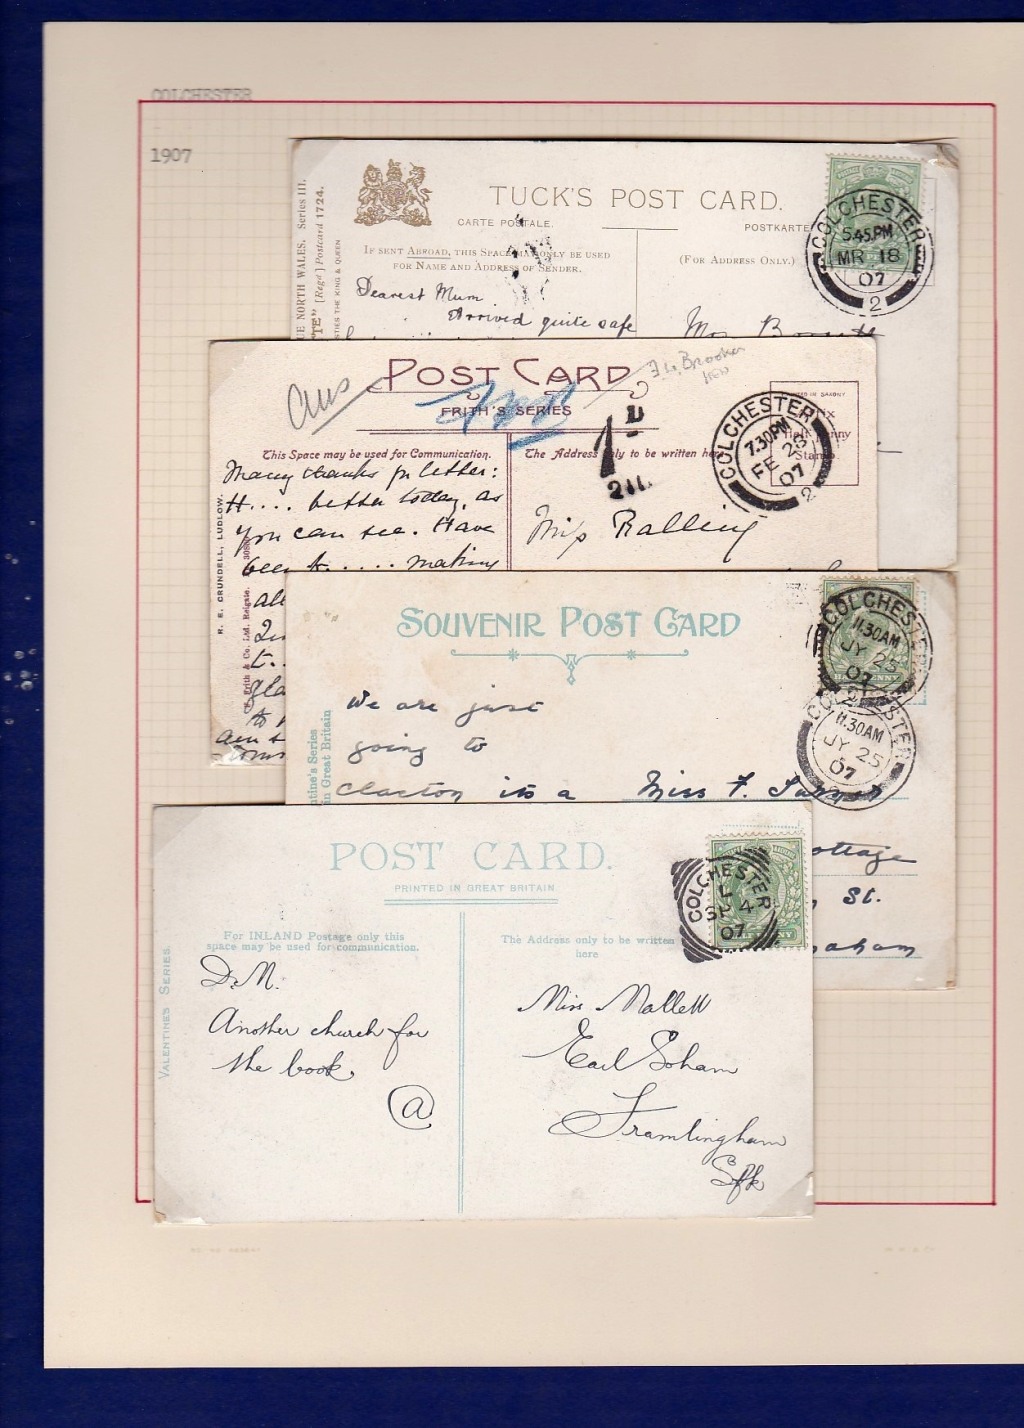 COLCHESTER
1907
TUCK'S POST CARD.
CARTE POSTALE.
POSTKARTE
IF SENT ABROAD, THIS SPACE MAY ONLY BE USED
FOR NAME AND ADDRESS OF SENDER.
(FOR ADDRESS ONLY.)
UE NORTH WALES. Series III.
TE" [Regd] Postcard 1724.
STIES THE KING & QUEEN
COLCHESTER
5.45 PM
MR 18
07
2
Dearest Mum
Arrived quite safe
Ans
POST CARD
FRITH'S SERIES
F. W. Brooker
This Space may be used for Communication.
The Address only to be written here
1D
211.
COLCHESTER
7.30PM
FE 23
07
2
Many thanks for letter:
H.... better today, as
you can see. Have
been t..... making
Miss Ralling
R. E. CRUNDELL, LUDLOW.
Frith & Co. Ltd. Reigate.
SOUVENIR POST CARD
COLCHESTER
11.30AM
JY 25
07
11.30AM
JY 25
07
We are just
going to
Clacton its a
Miss F.
ntine's Series
in Great Britain
ottage
St.
POST CARD.
PRINTED IN GREAT BRITAIN
For INLAND Postage only this
space may be used for communication.
The Address only to be written
here
VALENTINES SERIES
COLCHESTER
L
SP 4
07
D. M.
Another church for
the book.
@
Miss Mallett
Earl Soham
Framlingham
Sfk